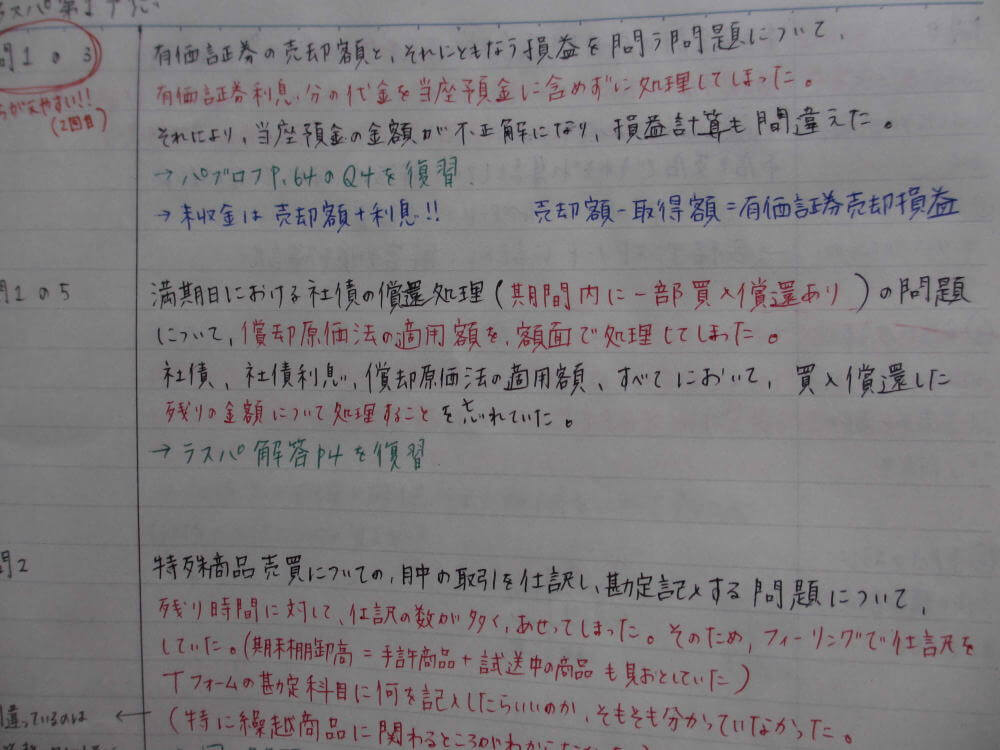 ラスパ第1予想
問1の3
まちがえやすい!!
(2回目)
有価証券の売却額と、それにともなう損益を問う問題について、
有価証券利息分の代金を当座預金に含めずに処理してしまった。
それにより、当座預金の金額が不正解になり、損益計算も間違えた。
→パブロフP.64のQ4を復習
→未収金は売却額+利息!! 売却額-取得額=有価証券売却損益
問1の5
満期日における社債の償還処理(期間内に一部買入償還あり)の問題
について、償却原価法の適用額を、額面で処理してしまった。
社債、社債利息、償却原価法の適用額、すべてにおいて、買入償還した
残りの金額について処理することを忘れていた。
→ラスパ解答P4を復習
問2
特殊商品売買についての、月中の取引を仕訳し、勘定記入する問題について、
残り時間に対して、仕訳の数が多く、あせってしまった。そのため、フィーリングで仕訳を
していた。(期末棚卸高=手許商品+試送中の商品も見おとしていた)
Tフォームの勘定科目に何を記入したらいいのか、そもそも分かっていなかった。
間違っているのは ←
(特に繰越商品に関わるところがわからなかった)